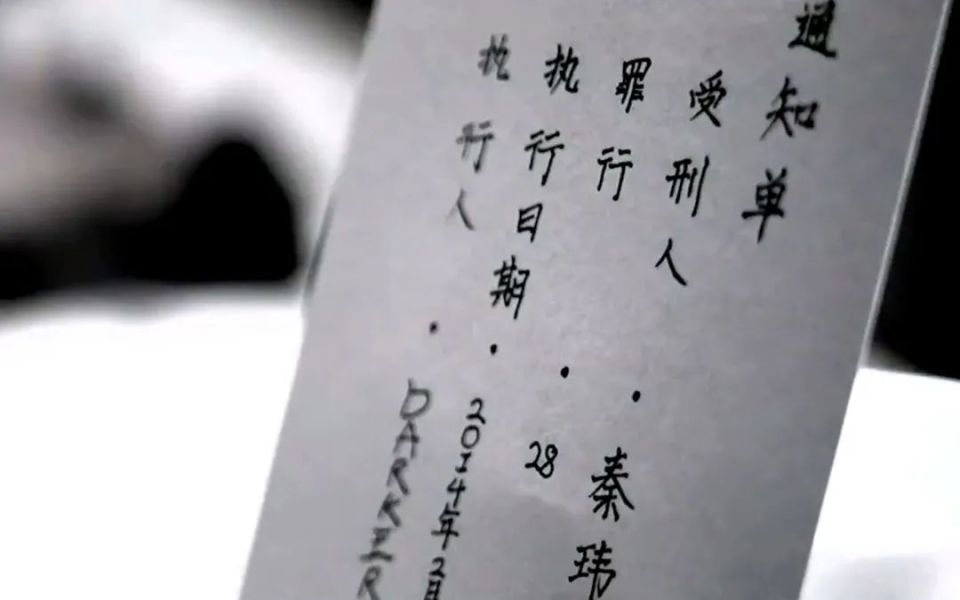 通知单
受刑人·秦玮
罪行·28
执行日期·2014年2月
执行人·DARKER